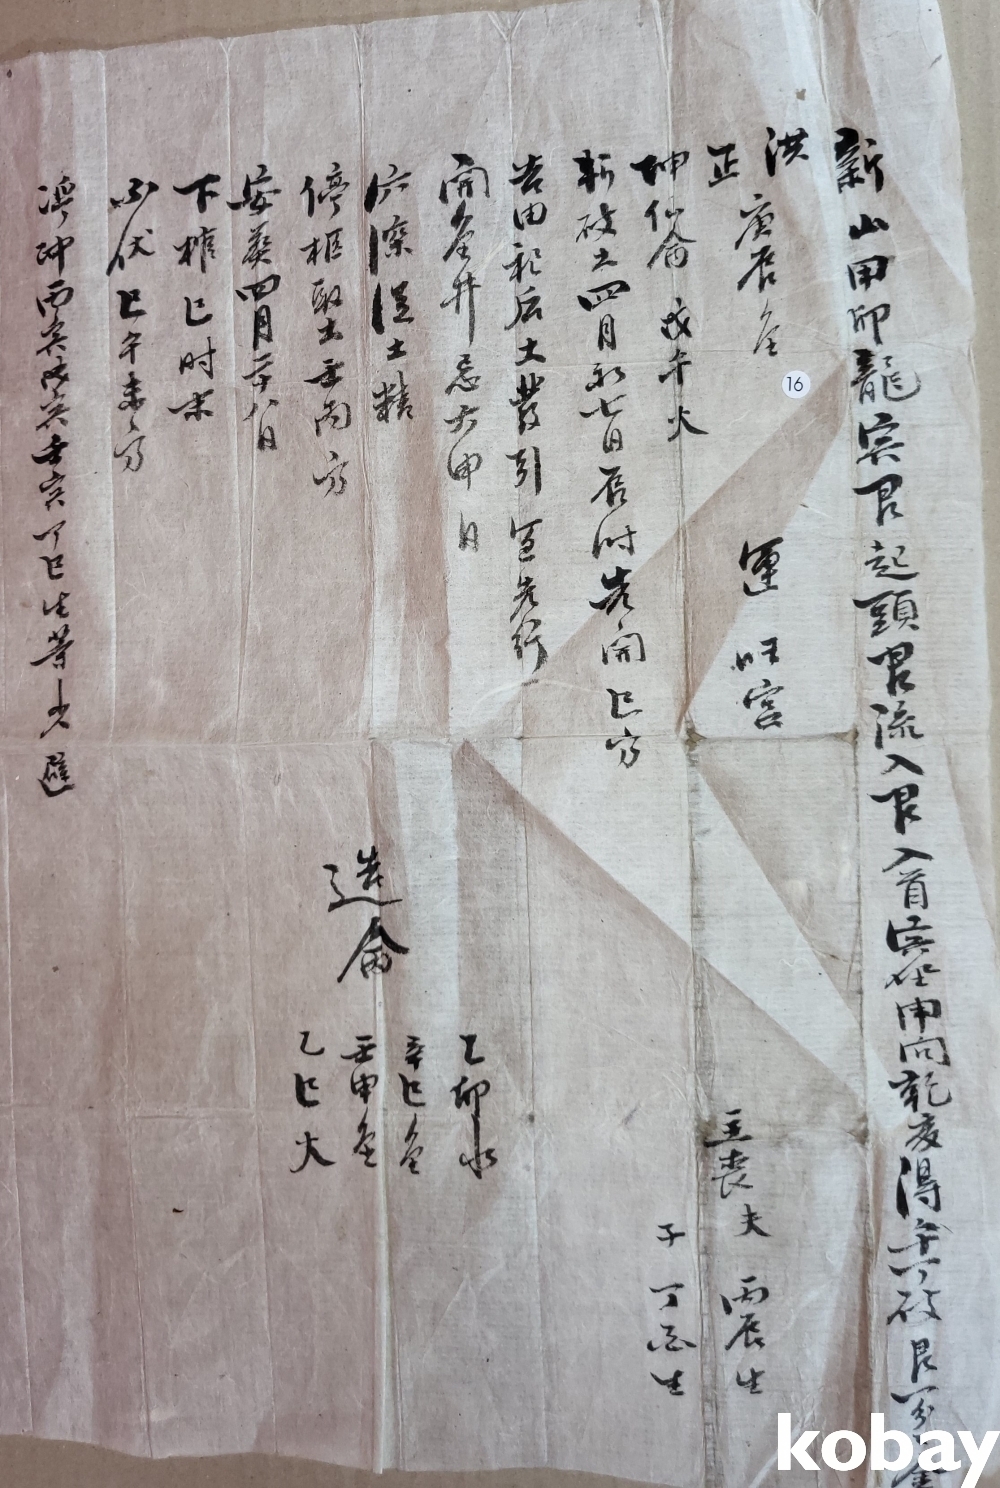 新山甲卯龍寅艮起頭艮流入艮入首寅坐申向乾亥得午丁破艮分金
洪 庚辰金 運 旺宮
正
主喪 夫 丙辰生
子 丁酉生
坤仙命 戊午火
斬破土四月初七日辰時先開巳方
告由祀后土發引宜先行
開金井忌六甲日
穴深淂土精
停柩取土壬丙方
安葬四月二十八日
下棺巳时末
不伏巳午未方
冲丙寅 壬寅丁巳生等少避
造命
乙卯水
辛巳金
壬申金
乙巳火
16
kobay